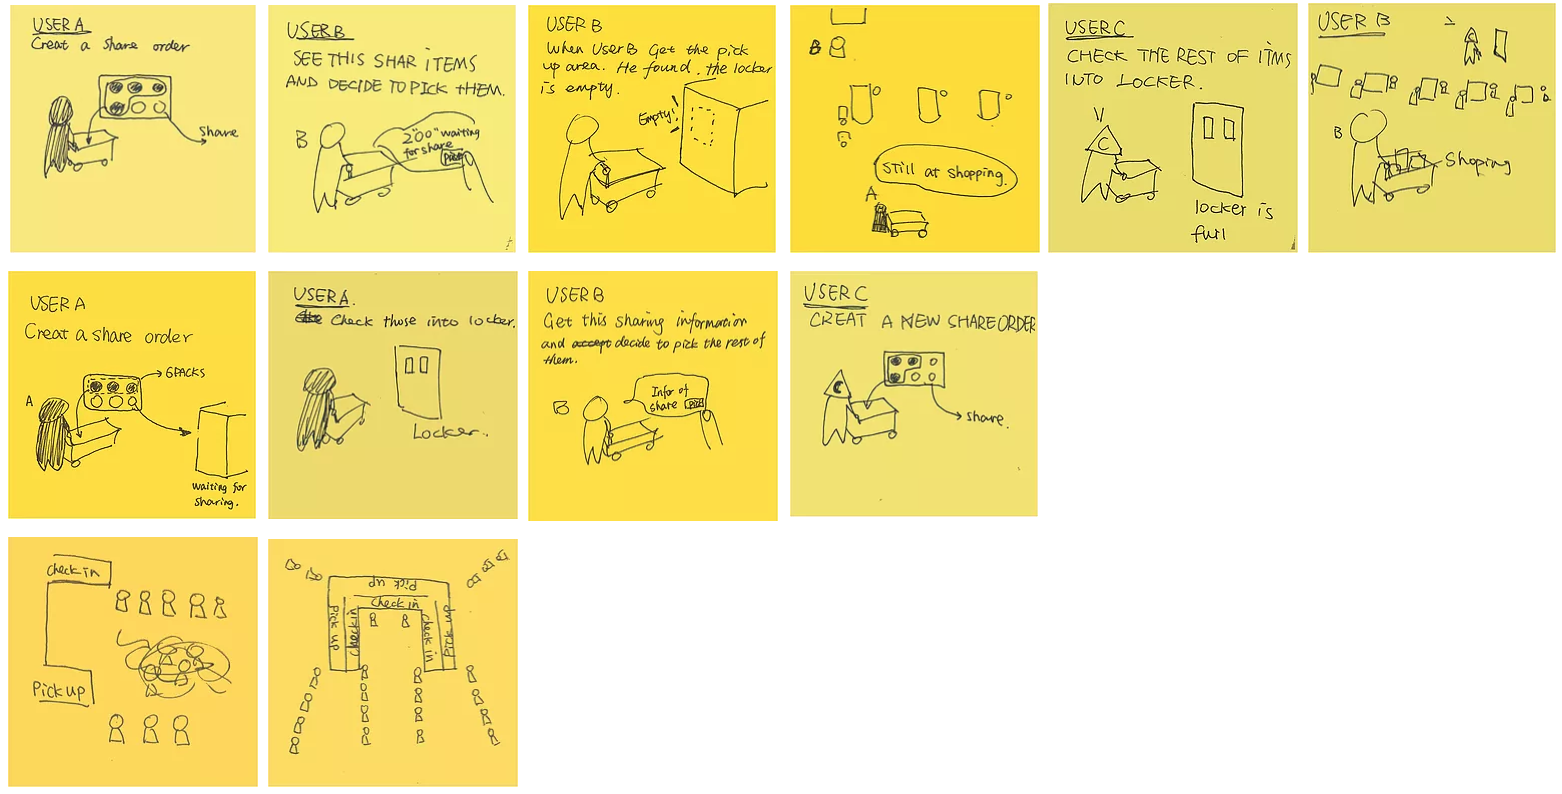 USER A
Creat a share order
share
USER B
SEE THIS SHAR iTEMS
AND DECIDE TO PICK tHEM.
B
2"00" waiting
for share
Pick
USER B
When User B Get the pick
up area. He found, the locker
is empty.
Empty!
B
still at shopping.
A
USER C
CHECK THE REST OF ITMS
INTO LOCKER.
C
locker is
full
USER B
B
Shoping
USER A
Creat a share order
6PACKS
A
waiting for
sharing.
USER A.
Check those into locker.
Locker.
USER B
Get this sharing information
and accept decide to pick the rest of
them.
Infor of
share Pick
B
USER C
CREAT A NEW SHARE ORDER
C
share.
Check in
Pick up
Pick up
Check in
Pick up
Check in
Check in
Pick up